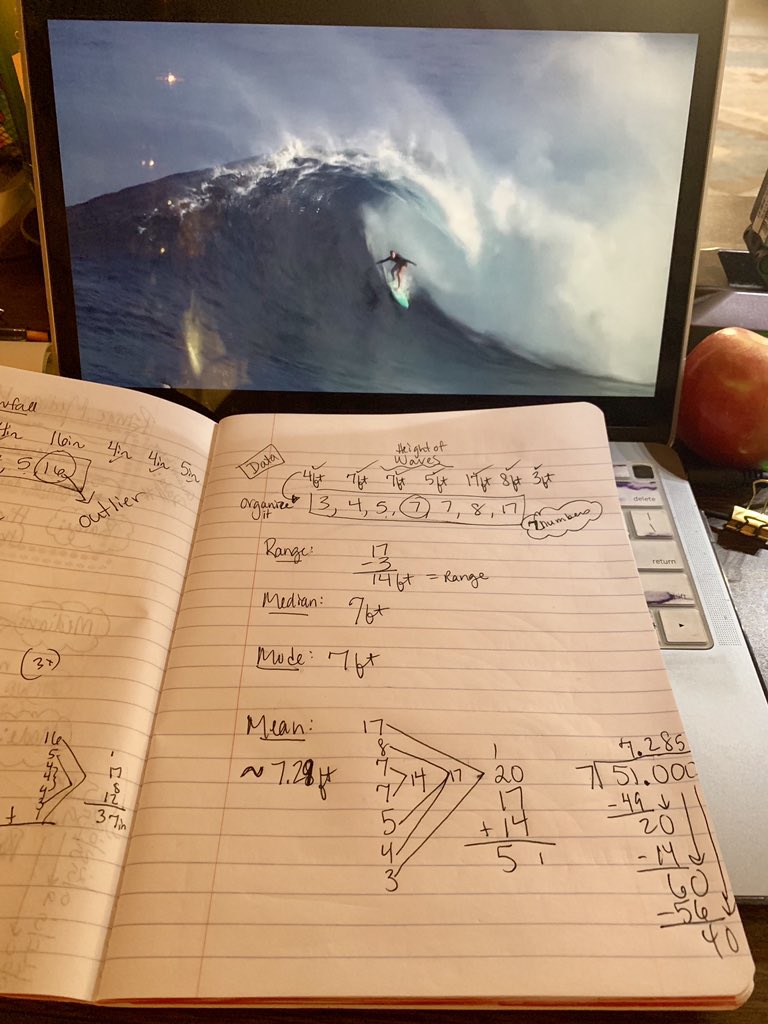 16in 4in 4in 5in
5 16
outlier
16
5
4
17
8
12
37in
Data
Height of
Waves
4ft 7ft 7ft 5ft 17ft 8ft 3ft
organize
it
3, 4, 5, 7, 7, 8, 17
7 numbers
Range:
17
-3
14ft = Range
Median: 7ft
Mode: 7ft
Mean:
≈ 7.29ft
17
8
7
7 > 14 17
5
4
3
1
20
17
+ 14
51
7.285
7 51.000
-49
20
-14
60
-56
40
delete
return
shift